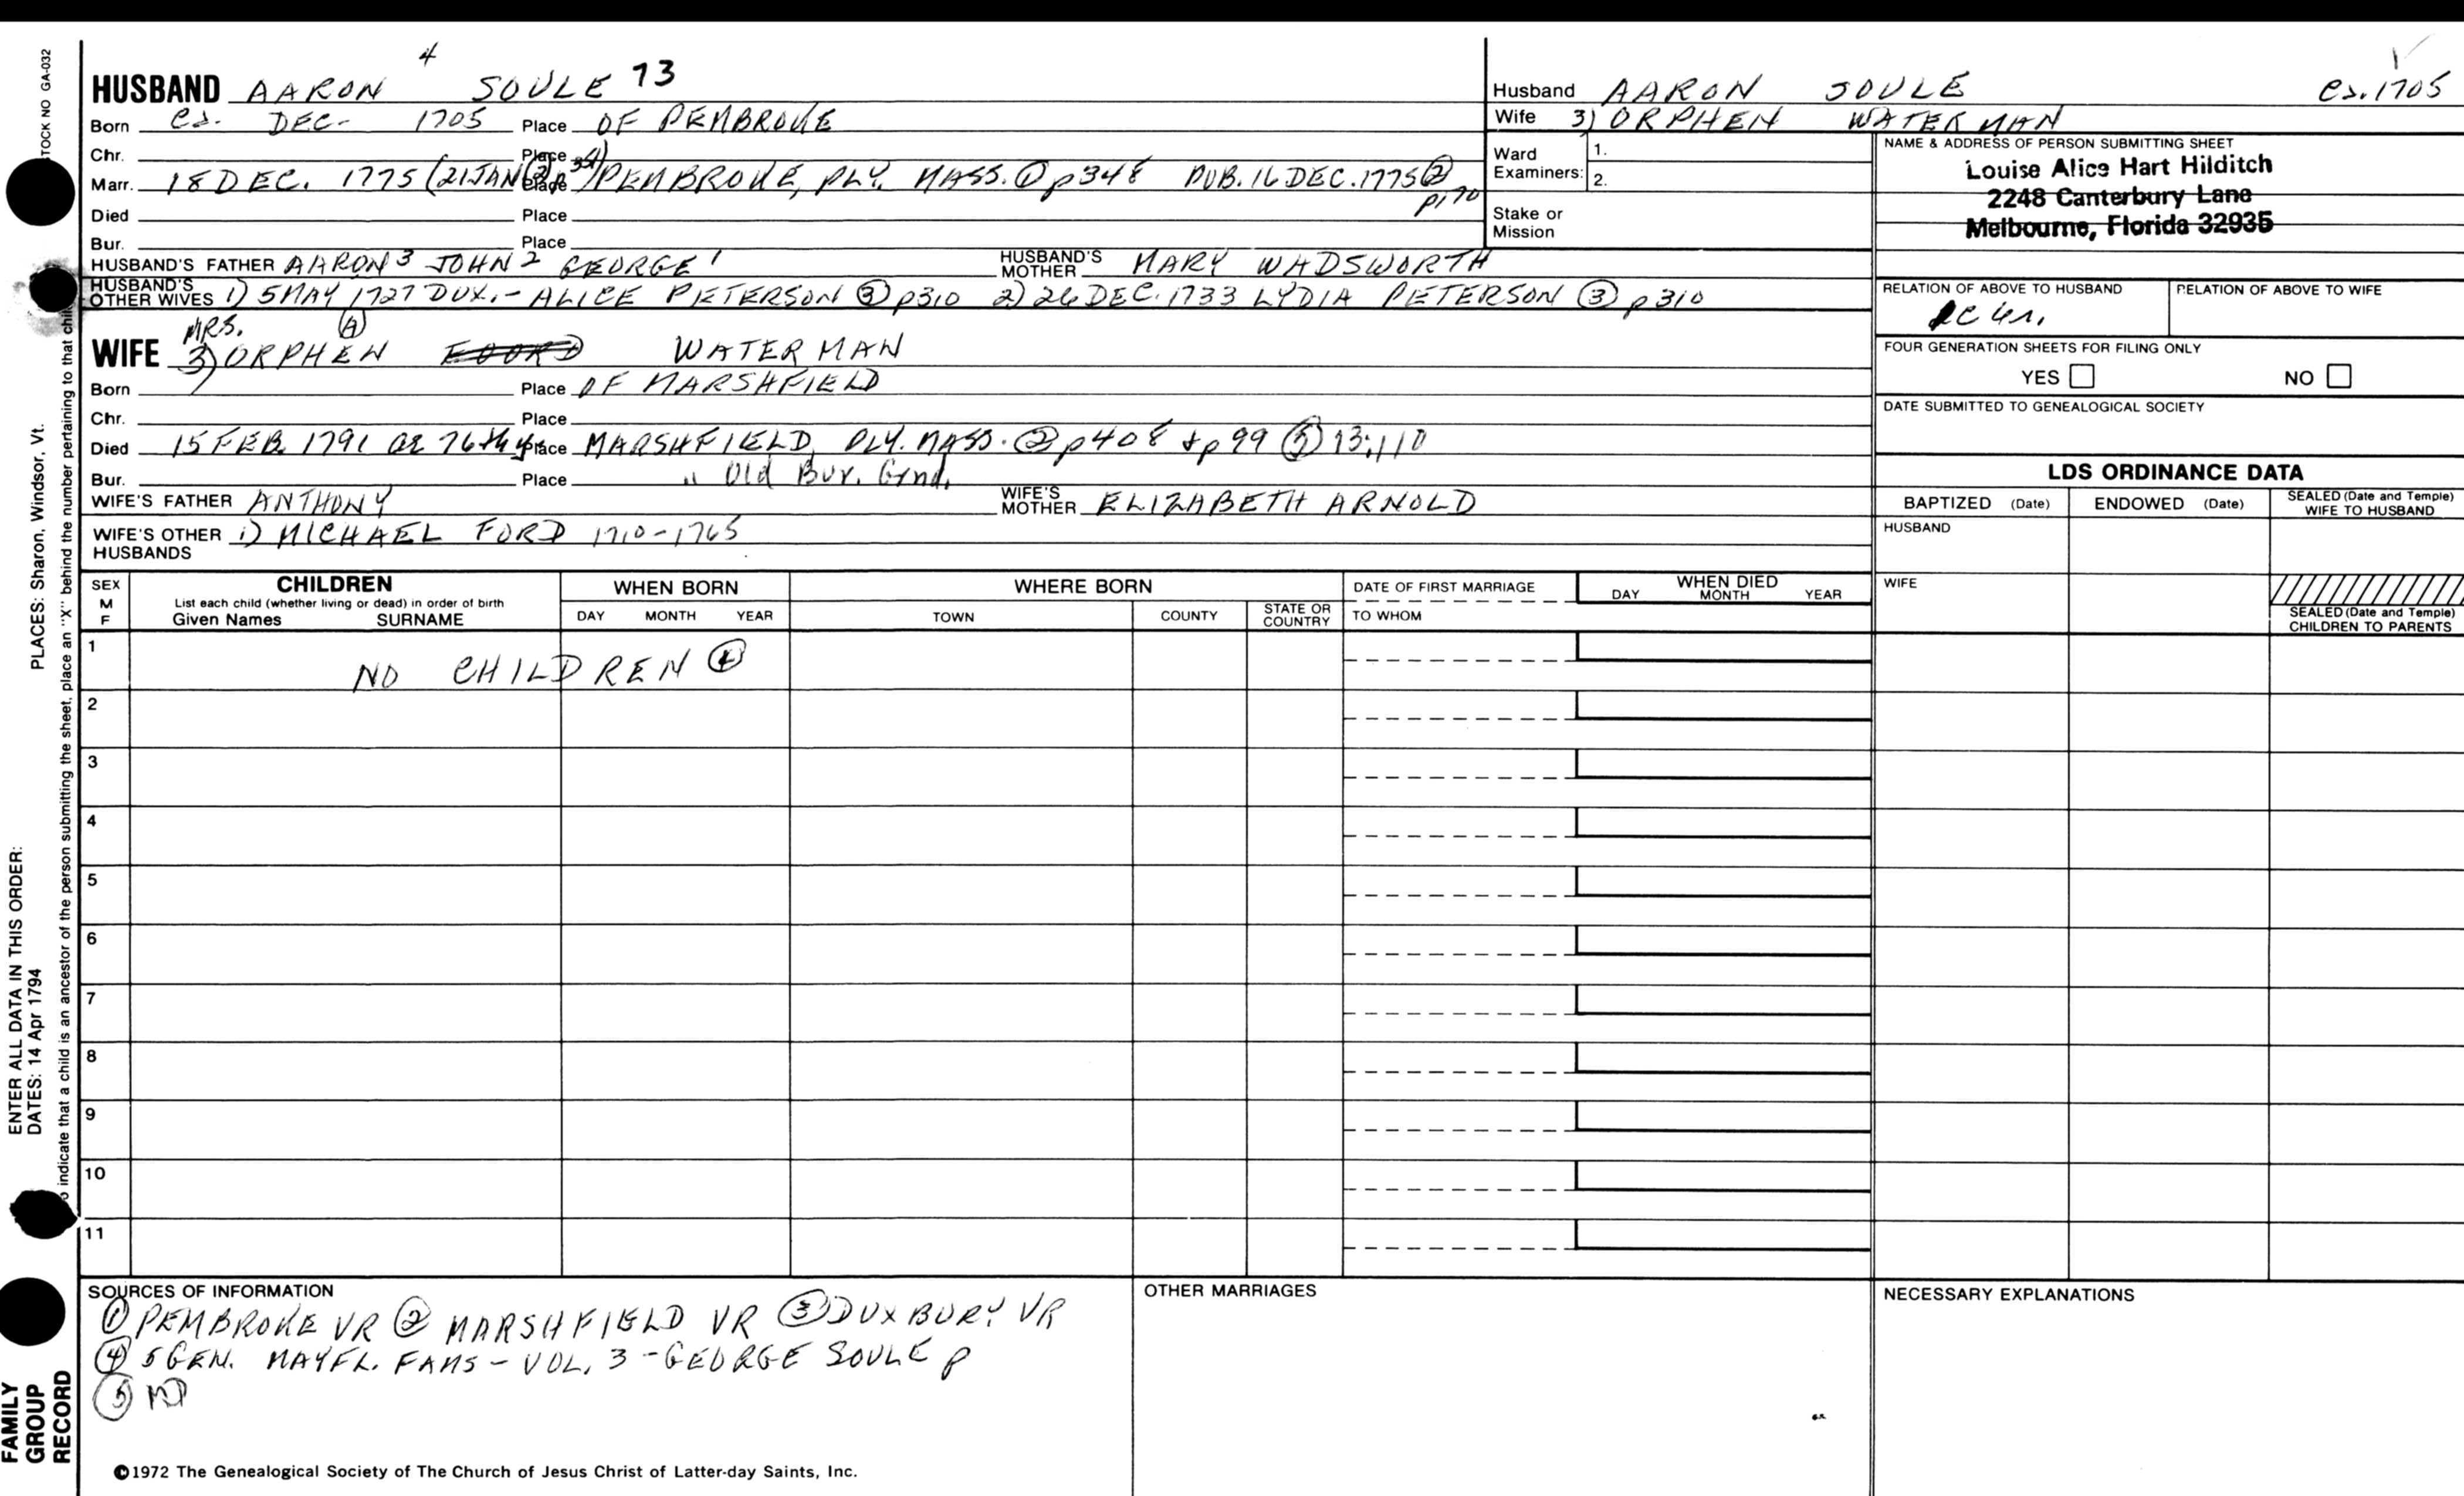 4
HUSBAND AARON SOULE 73
Born ca. DEC- 1705 Place OF PEMBROKE
Chr. Place
Marr. 18 DEC. 1775 (21 JAN Place PEMBROKE, PLY. MASS. ① p348 PUB. 16 DEC. 1775 ②
p170
Died Place
Bur. Place
HUSBAND'S FATHER AARON 3 JOHN 2 GEORGE 1 HUSBAND'S MOTHER MARY WADSWORTH
HUSBAND'S OTHER WIVES 1) 5 MAY 1727 DUX.- ALICE PETERSON ③ p310 2) 26 DEC. 1733 LYDIA PETERSON ③ p310
MRS. ④
WIFE 3) ORPHEN FOORD WATERMAN
Born Place OF MARSHFIELD
Chr. Place
Died 15 FEB. 1791 ae 76th yr Place MARSHFIELD, PLY. MASS. ② p408 + p99 ⑤ 13:110
Bur. Place " Old Bur. Grnd.
WIFE'S FATHER ANTHONY WIFE'S MOTHER ELIZABETH ARNOLD
WIFE'S OTHER HUSBANDS 1) MICHAEL FORD 1710-1765
Husband AARON SOULE ca. 1705
Wife 3) ORPHEN WATERMAN
Ward Examiners: 1.
2.
Stake or Mission
NAME & ADDRESS OF PERSON SUBMITTING SHEET
Louise Alice Hart Hilditch
2248 Canterbury Lane
Melbourne, Florida 32935
RELATION OF ABOVE TO HUSBAND RELATION OF ABOVE TO WIFE
FOUR GENERATION SHEETS FOR FILING ONLY
YES NO
DATE SUBMITTED TO GENEALOGICAL SOCIETY
LDS ORDINANCE DATA
BAPTIZED (Date) ENDOWED (Date) SEALED (Date and Temple) WIFE TO HUSBAND
HUSBAND
WIFE
SEALED (Date and Temple) CHILDREN TO PARENTS
SEX M F
CHILDREN
List each child (whether living or dead) in order of birth
Given Names SURNAME
WHEN BORN
DAY MONTH YEAR
WHERE BORN
TOWN COUNTY STATE OR COUNTRY
DATE OF FIRST MARRIAGE
TO WHOM
WHEN DIED
DAY MONTH YEAR
1 NO CHILDREN ④
2
3
4
5
6
7
8
9
10
11
SOURCES OF INFORMATION
① PEMBROKE VR ② MARSHFIELD VR ③ DUXBURY VR
④ 5 GEN. MAYFL. FAMS - VOL. 3 - GEORGE SOULE p
⑤ MD
OTHER MARRIAGES
NECESSARY EXPLANATIONS
©1972 The Genealogical Society of The Church of Jesus Christ of Latter-day Saints, Inc.
STOCK NO GA-032
PLACES: Sharon, Windsor, Vt.
ENTER ALL DATA IN THIS ORDER:
DATES: 14 Apr 1794
indicate that a child is an ancestor of the person submitting the sheet, place an "X" behind the number pertaining to that
FAMILY
GROUP
RECORD